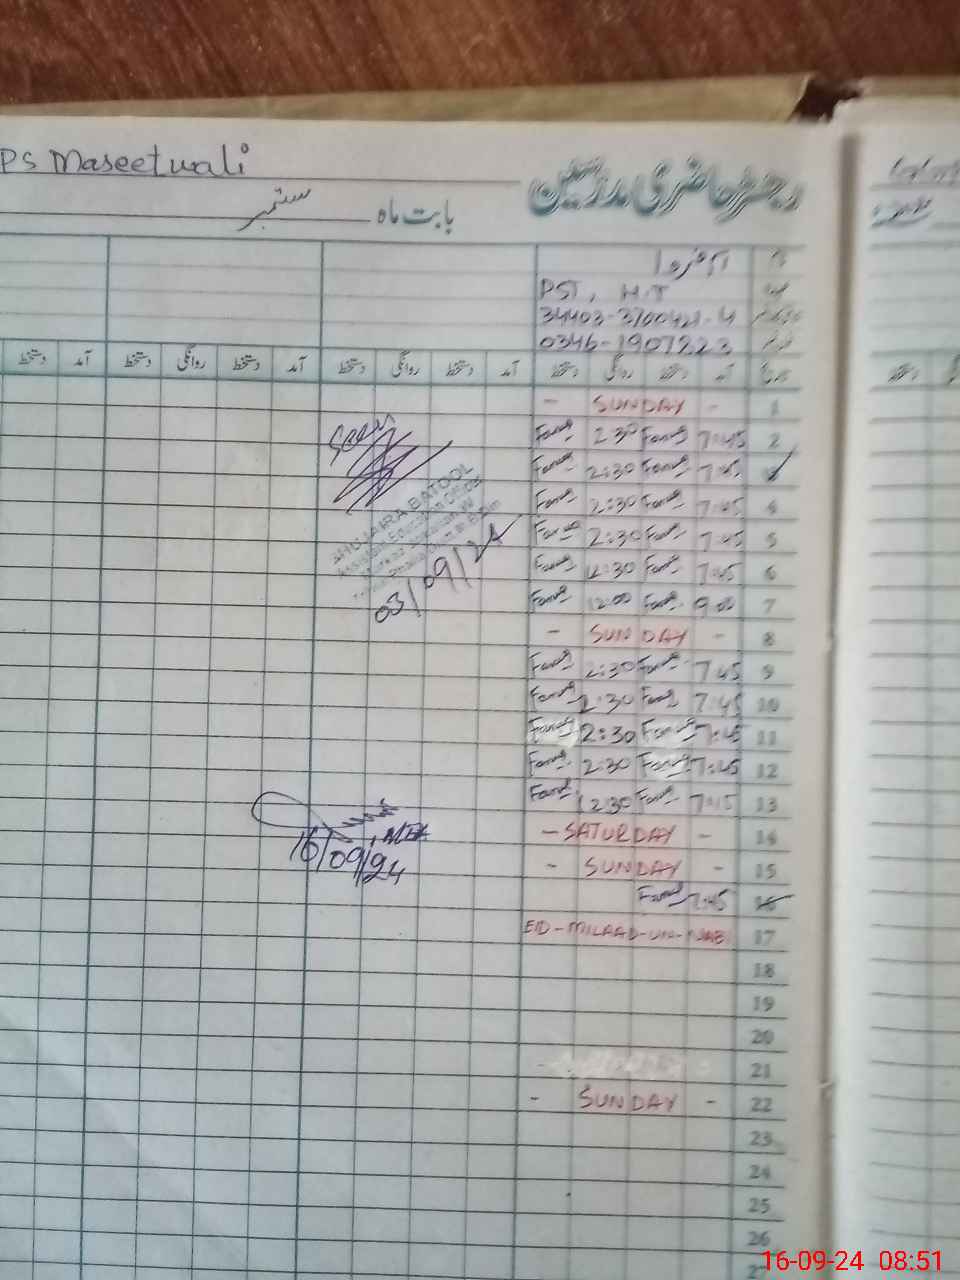 PS Maseetwali
رجسٹر حاضری مدرسین
بابت ماہ ستمبر
PST, H.T
34403-3700421-4
0346-1907223
دستخط آمد دستخط روانگی دستخط آمد دستخط روانگی دستخط آمد دستخط روانگی دستخط آمد
- SUNDAY - 1
Farwa 2:30 Farwa 7:45 2
Farwa 2:30 Farwa 7:45 3
Farwa 2:30 Farwa 7:45 4
Farwa 2:30 Farwa 7:45 5
Farwa 12:30 Farwa 7:45 6
Farwa 12:00 Farwa 9:00 7
- SUNDAY - 8
Farwa 2:30 Farwa 7:45 9
Farwa 2:30 Farwa 7:45 10
Farwa 2:30 Farwa 7:45 11
Farwa 2:30 Farwa 7:45 12
Farwa 12:30 Farwa 7:45 13
- SATURDAY - 14
- SUNDAY - 15
Farwa 7:45 16
EID-MILAAD-UN-NABI 17
18
19
20
21
- SUNDAY - 22
23
24
25
26
Seen
SHUMAIRA BATOOL
Assistant Education Officer
03/09/24
, MEA
16/09/24
16-09-24 08:51